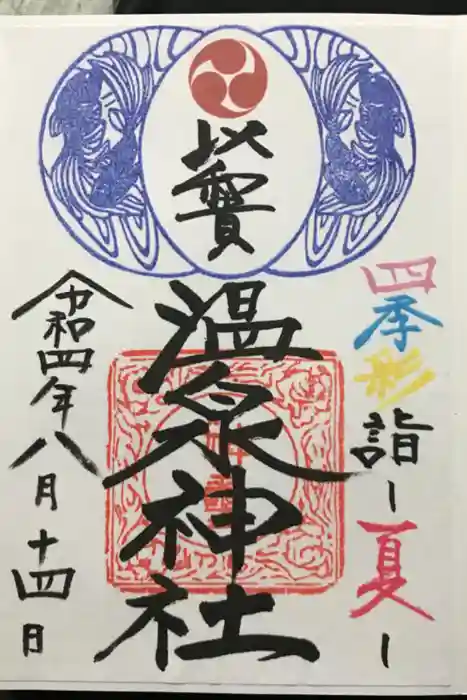 四季彩詣ー夏ー
以和貴
温泉神社
令和四年八月十四日